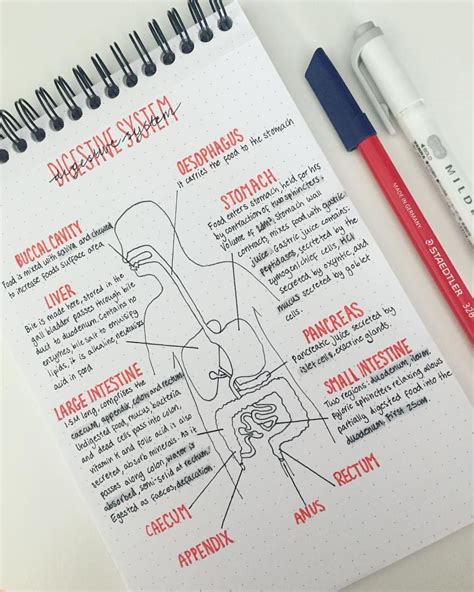 DIGESTIVE SYSTEM
digestive system
BUCCAL CAVITY
Food is mixed with saliva and chewed
to increase foods surface area
LIVER
Bile is made here, stored in the
gall bladder passes through bile
duct to duodenum. Contains no
enzymes, bile salt to emulsify
lipids, it is alkaline neutralizes
acid in food.
LARGE INTESTINE
1.5M long, comprises the
caecum, appendix, colon and rectum.
Undigested food, mucus, bacteria
and dead cells pass into colon,
vitamin K and folic acid is also
secreted, absorb minerals. As it
passes along colon, water is
absorbed, semi-solid at rectum
Egested as faeces, defacation.
CAECUM
APPENDIX
ANUS
RECTUM
OESOPHAGUS
It carries the food to the stomach
STOMACH
Food enters stomach, held for hrs
by contraction of two sphincters,
volume of stomach wall
contracts, mixes food with gastric
juice. Gastric juice contains:
peptidases, secreted by the
zymogen, chief cells. HCl
secreted by oxyntic, and
mucus secreted by goblet
cells.
PANCREAS
Pancreatic juice secreted by
islet cells, exocrine glands.
SMALL INTESTINE
Two regions: duodenum,
pyloric sphincters relaxing allows
partially digested food into the
duodenum, first 25cm.
MADE IN GERMANY
STAEDTLER
326
MILD